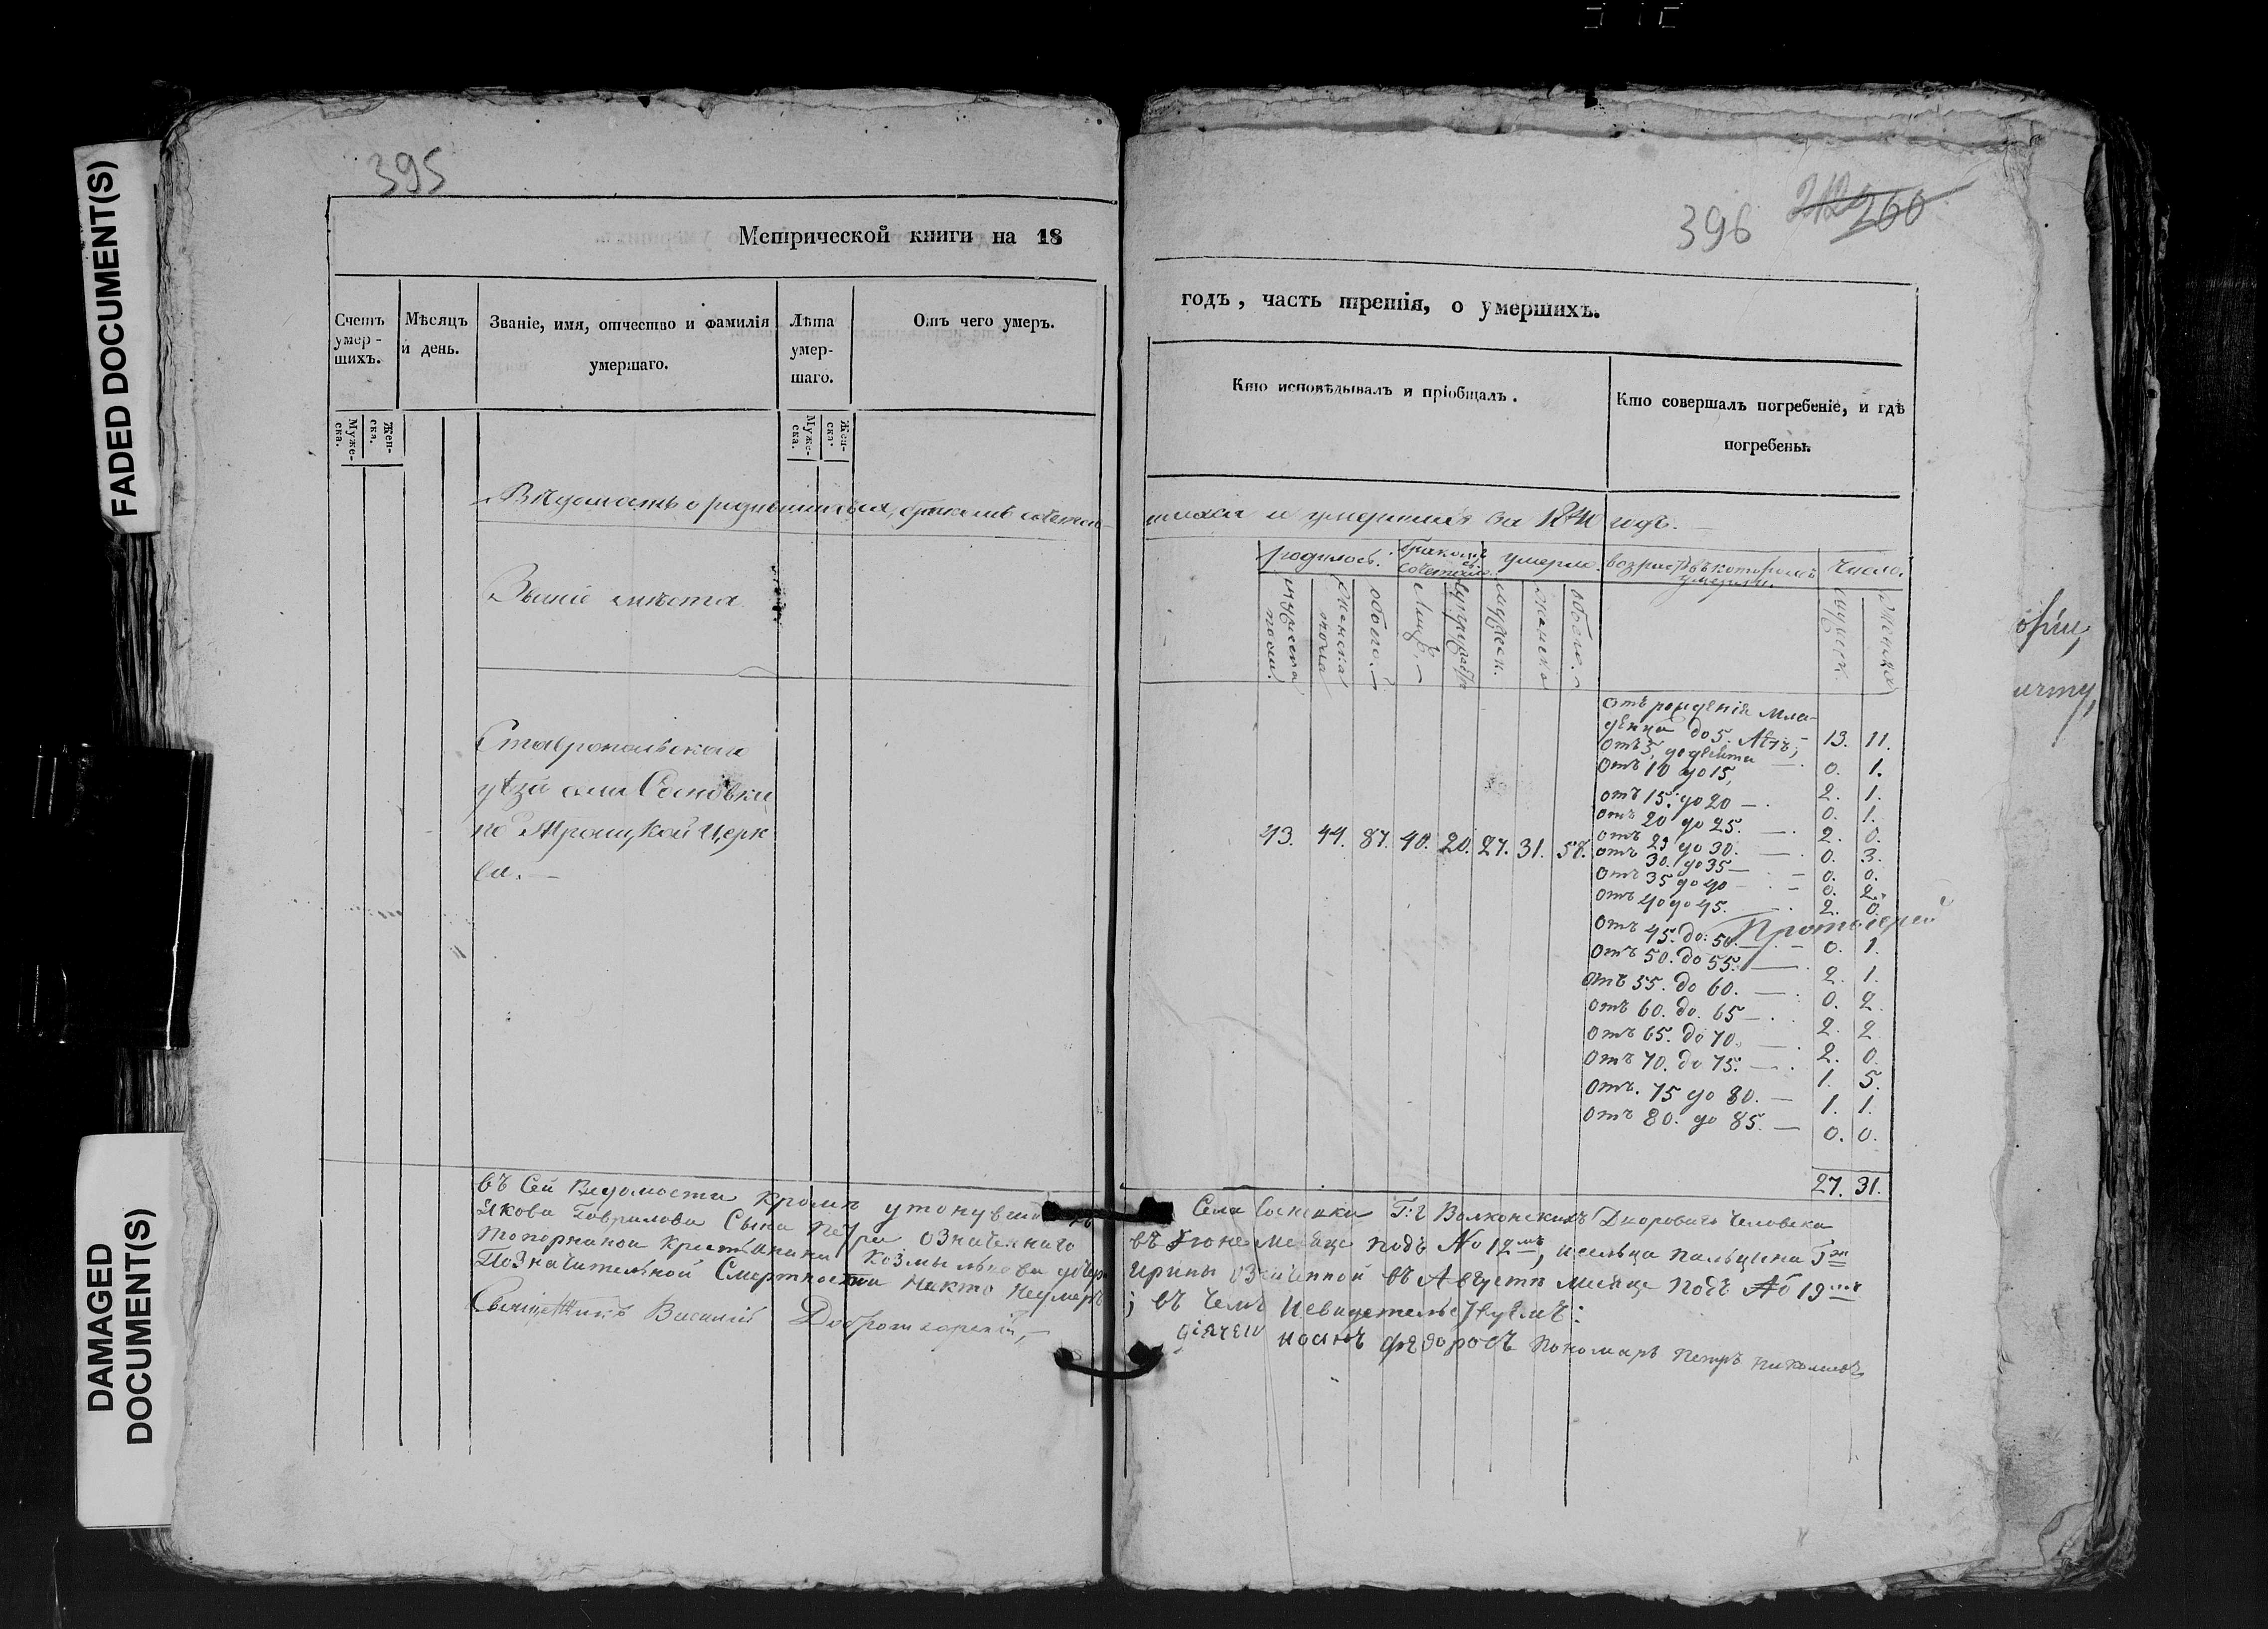 FADED DOCUMENT(S)
DAMAGED
DOCUMENT(S)
395
Метрической книги на 18
Счетъ умер-шихъ.
Мѣсяцъ и день.
Званіе, имя, отчество и фамилія умершаго.
Лѣта умер-шаго.
Отъ чего умеръ.
Муже-ска.
Жен-ска.
Муже-ска.
Жен-ска.
Вѣдомость о родившихся, бракомъ сочетав-
Званіе мѣста
Ставропольскаго
уѣзда села Сосновки
по Троицкой Церк
ви.—
въ Сей Ведомости кромѣ утонувшаго
Якова Гаврилова Сына Петра означеннаго
крестьянина Козмы дочери
Позначительной Смертности никто неумеръ
Священникъ Василий Добротворский,—
396
260
годъ, часть третія, о умершихъ.
Кто исповѣдывалъ и пріобщалъ.
Кто совершалъ погребеніе, и гдѣ
погребены.
шихся и умершихъ за годъ.—
родилось.
бракомъ сочеталось
умерло.
возрастъ въ которомъ умерли.
Число.
мужеска пола.
женска пола
обоего.—
Лицъ.—
мужеск.
женска
обоего.—
мужеск.
женска
отъ рожденія мла-
денца до 5. Лѣтъ; 13. 11.
отъ 5. до десяти —. 0. 1.
отъ 10 до 15, 2. 1.
отъ 15. до 20 —. 0. 1.
отъ 20 до 25. —. 2. 0.
43. 44. 87. 40. 20. 27. 31. 58.
отъ 25 до 30. —. 0. 3.
отъ 30. до 35 —. 0. 0.
отъ 35 до 40 —. 0. 2.
отъ 40 до 45. 2. 0.
Протоіерей
отъ 45. до: 50.— 0. 1.
отъ 50. до 55. —. 2. 1.
отъ 55. до 60. —. 0. 2.
отъ 60. до. 65 —. 2. 2
отъ 65. до 70. —. 2. 0.
отъ 70. до 75. —. 1. 5.
отъ. 75 до 80. — 1. 1.
отъ 80. до 85. — 0. 0.
27. 31.
Села Сосновки Волконскихъ Двороваго Человека
въ Iюне Месяце подъ No 12мъ, и сельца Пальцина
Ирины означенной въ Августе месяце подъ No 19мъ
; въ чемъ и свидетельствуемъ:
дiячекъ федоровъ пономарь Петръ Николаевъ